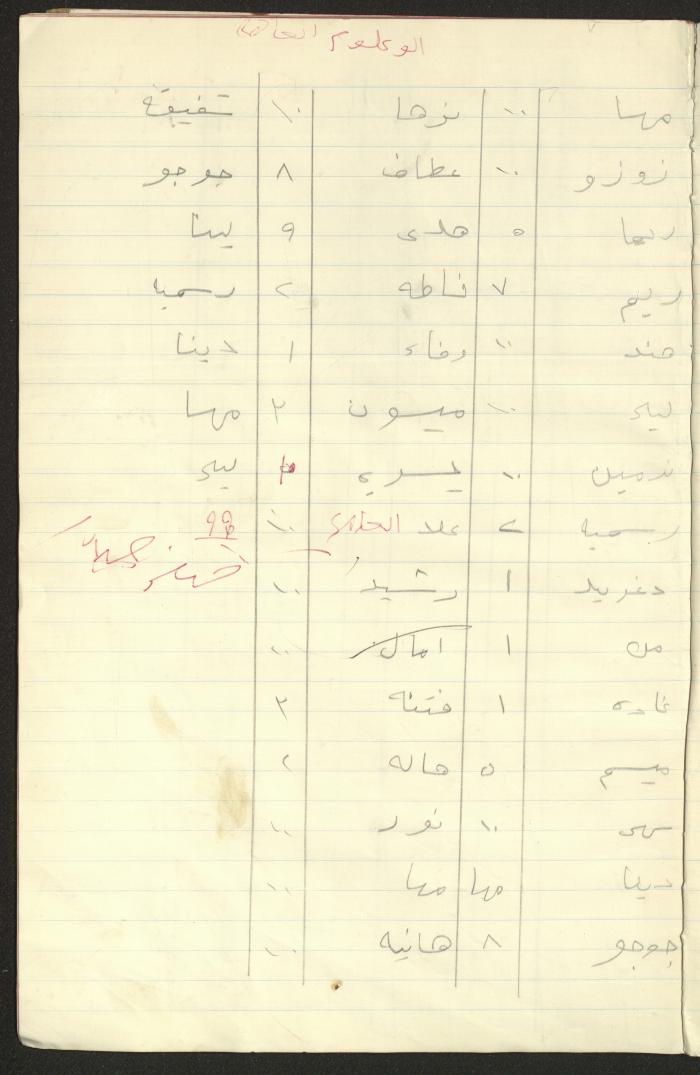 العلوم العامة
مها ١٠ نزها ١٠ شفيقة
زوزو ١٠ عطاف ٨ جوجو
ريما ٥ هدى ٩ لينا
ريم ٧ فاطه ٢ رسميه
هند ١٠ وفاء ١ دينا
ليلى ١٠ ميسون ٣ مها
نرمين ١٠ يسريه ٣ ليلى
رسميه ٢ علا ١٠ ٩٩
دغريد ١ رشيد ١٠ جيد
من ١ امال ١٠
غاده ١ فتنه ٣
ميسم ٥ هاله ٢
سهى ١٠ نور ١٠
دينا مها مها ١٠
جوجو ٨ هانيه ١٠